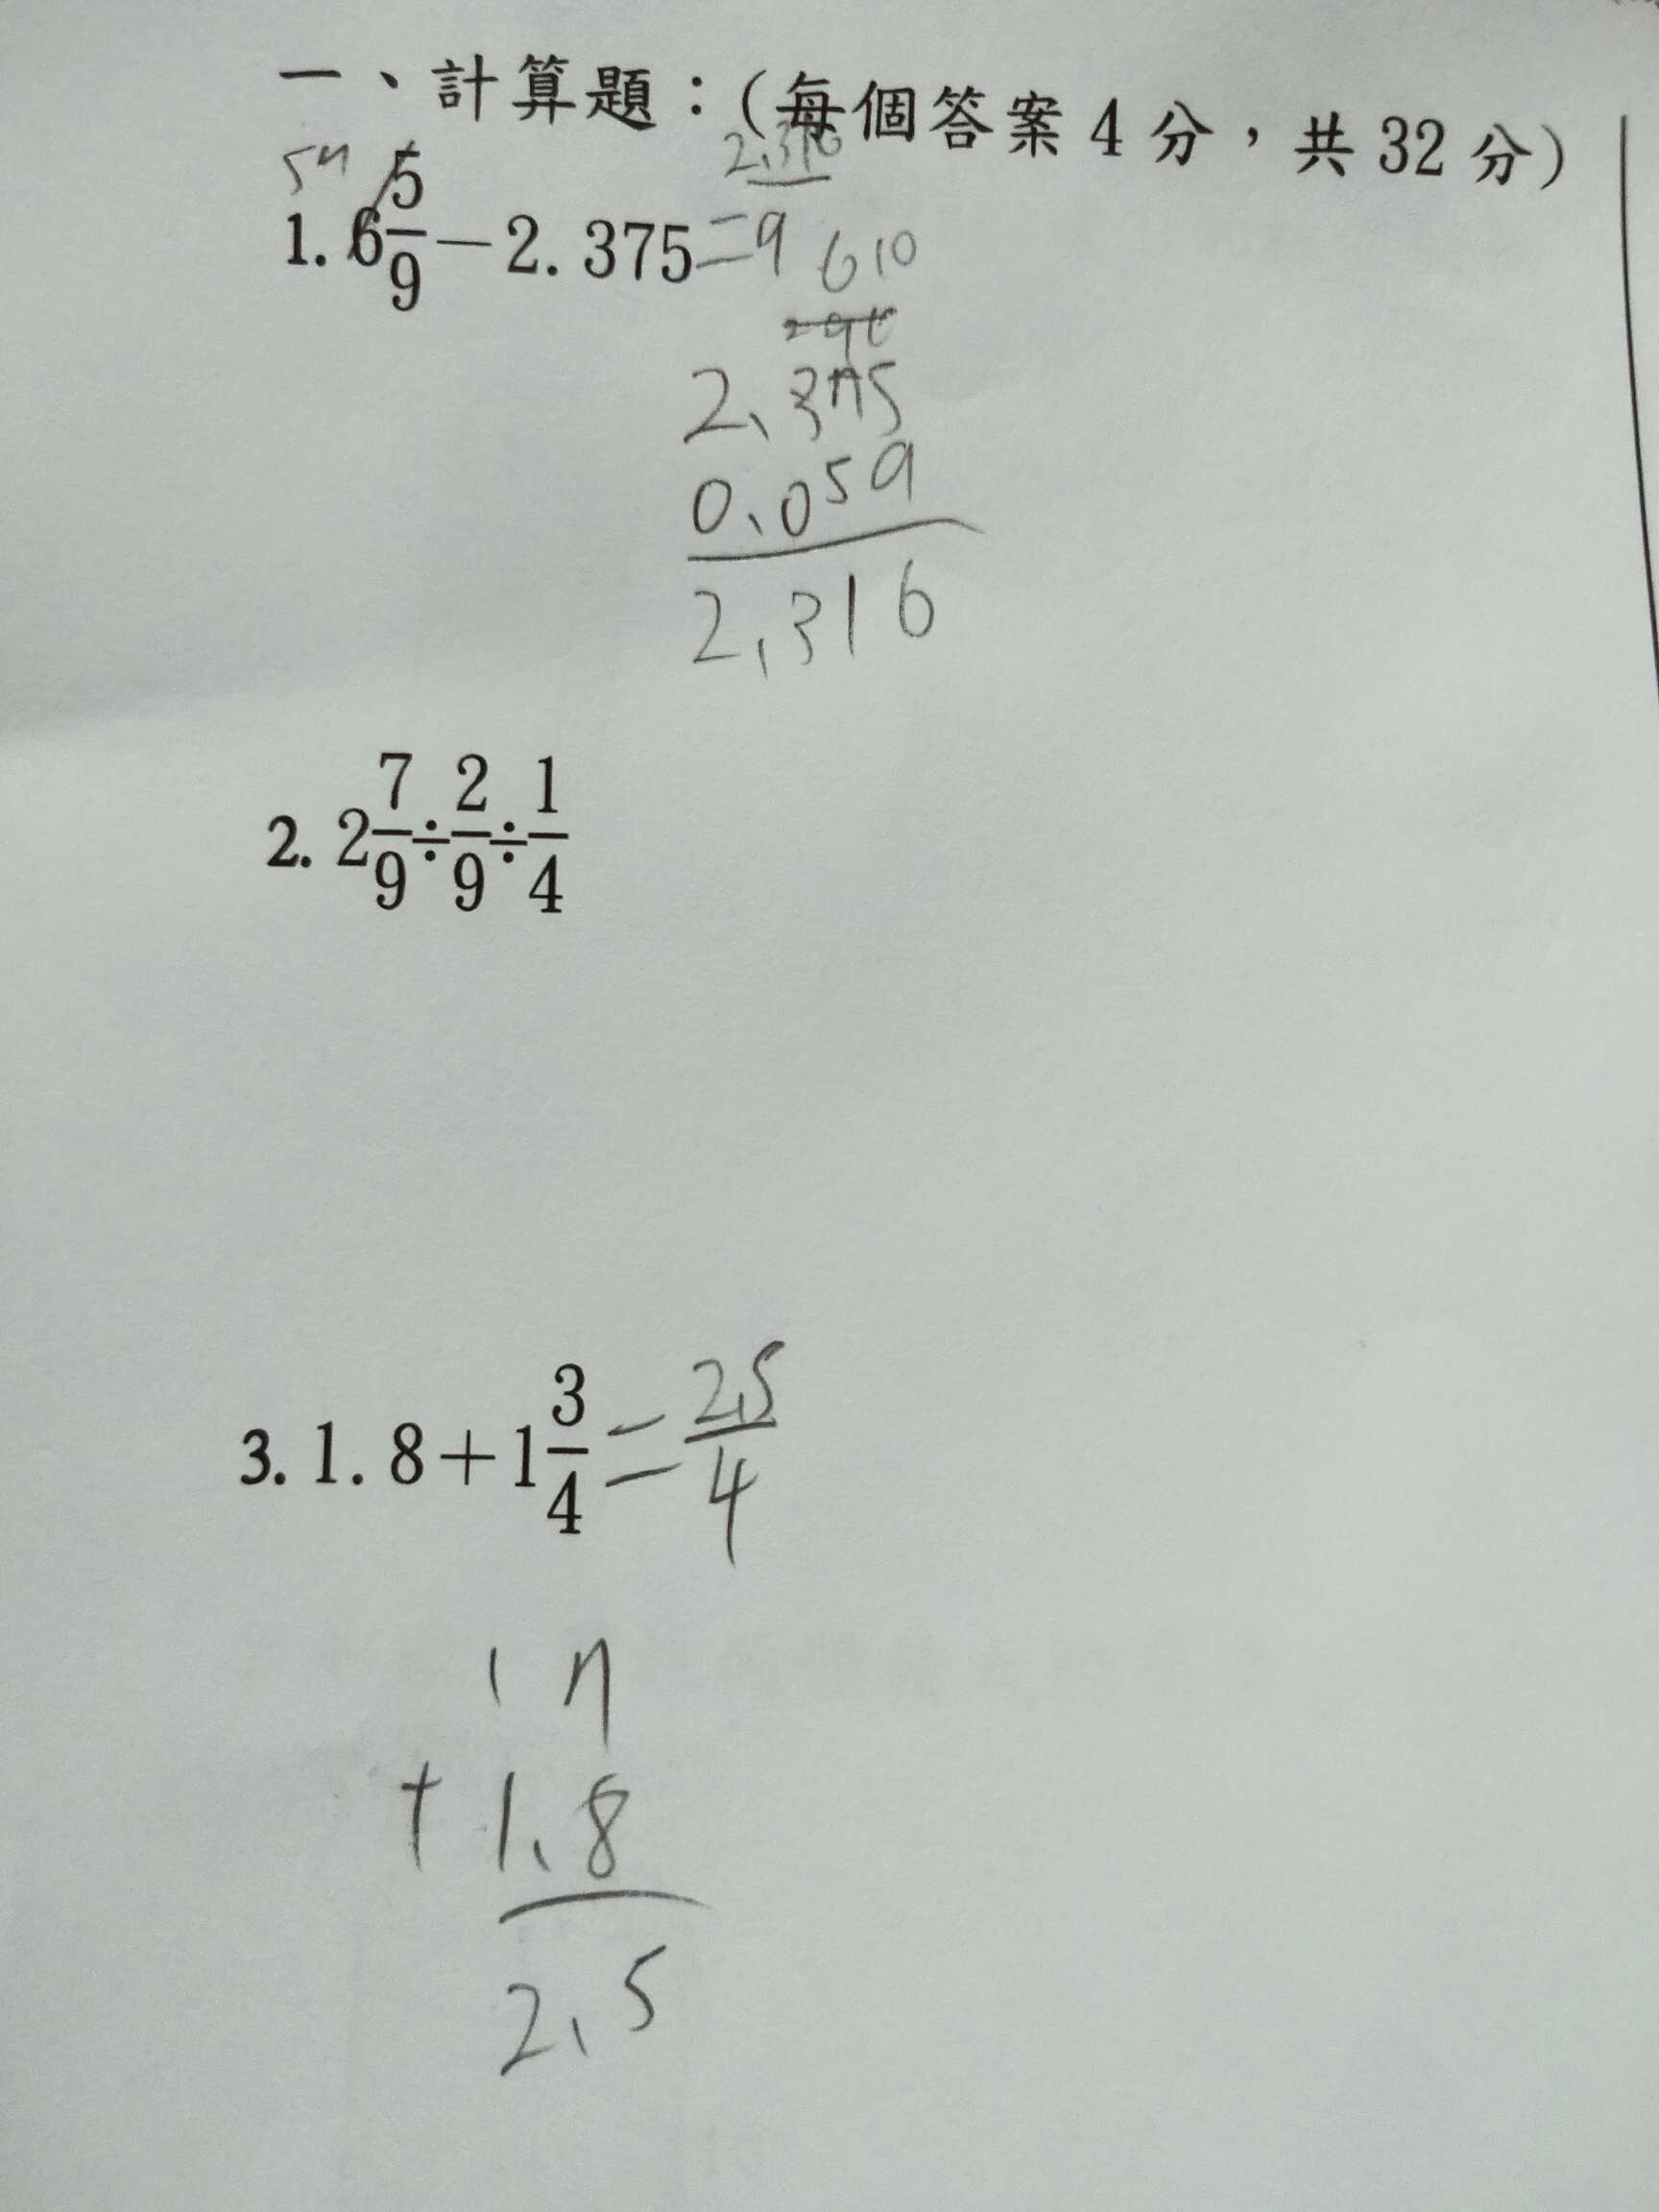 一、計算題：(每個答案 4 分，共 32 分)
2.316
57
1. 6 5/9 － 2.375 = 9
6 10
2.375
0.059
2.316
2. 2 7/9 ÷ 2/9 ÷ 1/4
3. 1.8 ＋ 1 3/4 = 2.5/4
1 7
+ 1.8
2.5